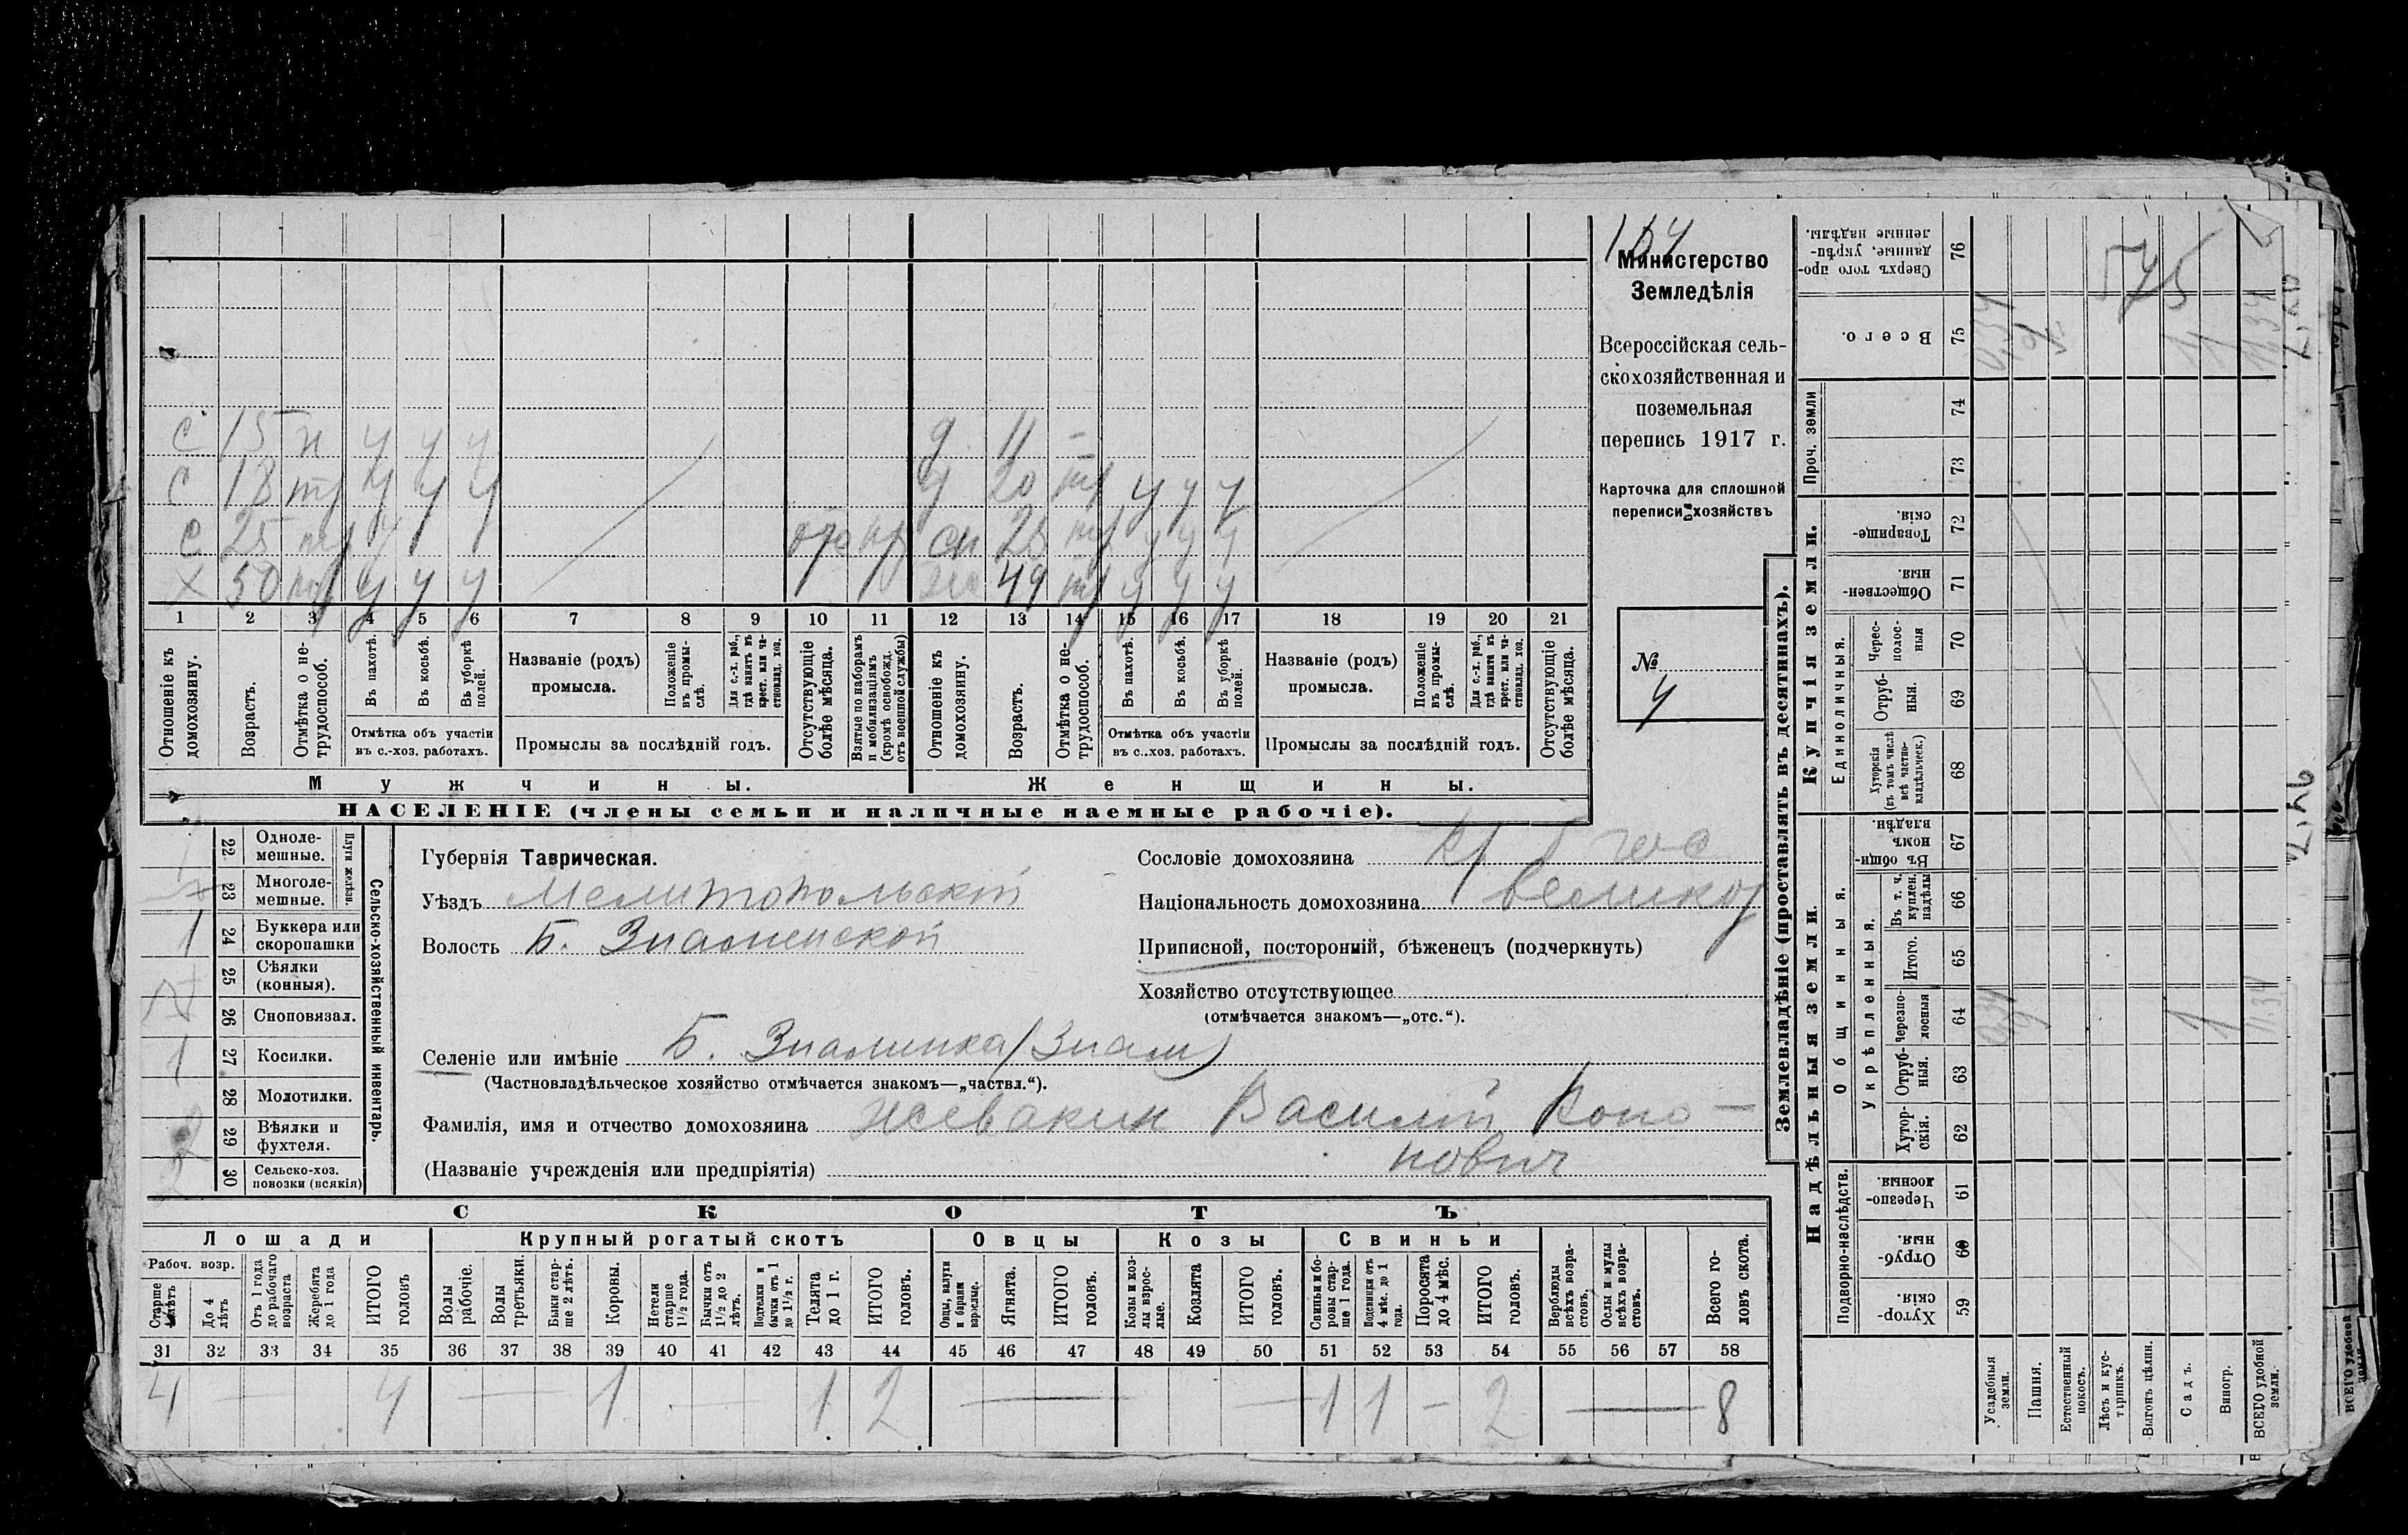 С 15 н у у у д 11 –
С 18 тр у у у д 20 тр у у у
С 25 тр у у у отс сн 25 тр у у у
Х 50 тр у у у 49 тр у у у
1 2 3 4 5 6 7 8 9 10 11 12 13 14 15 16 17 18 19 20 21
Отношеніе къ домохозяину.
Возрастъ.
Отмѣтка о нетрудоспособ.
Въ пахотѣ.
Въ косьбѣ.
Въ уборкѣ полей.
Отмѣтка объ участіи
въ с.-хоз. работахъ.
Названіе (родъ)
промысла.
Положеніе въ промыслѣ.
Для с.-х. раб., гдѣ занятъ въ крест. или частновлад. хоз.
Промыслы за послѣдній годъ.
Отсутствующіе болѣе мѣсяца.
Взятые по наборамъ и мобилизаціямъ (кромѣ освобожд. отъ военной службы)
Отношеніе къ домохозяину.
Возрастъ.
Отмѣтка о нетрудоспособ.
Въ пахотѣ.
Въ косьбѣ.
Въ уборкѣ полей.
Отмѣтка объ участіи
въ с.-хоз. работахъ.
Названіе (родъ)
промысла.
Положеніе въ промыслѣ.
Для с.-х. раб., гдѣ занята въ крест. или частновлад. хоз.
Промыслы за послѣдній годъ.
Отсутствующіе болѣе мѣсяца.
Мужчины. Женщины.
НАСЕЛЕНІЕ (члены семьи и наличные наемные рабочіе).
Министерство
Земледѣлія
Всероссійская сель-
скохозяйственная и
поземельная
перепись 1917 г.
Карточка для сплошной
переписи хозяйствъ
№
4
22 Одноле-
мешные.
23 Многоле-
мешные.
Плуги желѣзн.
1 24 Буккера или
скоропашки
25 Сѣялки
(конныя).
26 Сноповязал.
1 27 Косилки.
28 Молотилки.
29 Вѣялки и
фухтеля.
2 30 Сельско-хоз.
повозки (всякія)
Сельско-хозяйственный инвентарь
Губернія Таврическая.
Уѣздъ Мелитопольскій
Волость Б. Знаменской
Сословіе домохозяина кр
Національность домохозяина великор
Приписной, посторонній, бѣженецъ (подчеркнуть)
Хозяйство отсутствующее
(отмѣчается знакомъ—„отс.“).
Селеніе или имѣніе Б. Знаменка (Знам)
(Частновладѣльческое хозяйство отмѣчается знакомъ—„частвл.“).
Фамилія, имя и отчество домохозяина Жевакин Василій Коно-
(Названіе учрежденія или предпріятія) нович
СКОТЪ
Лошади Крупный рогатый скотъ Овцы Козы Свиньи
Рабоч. возр.
Старше 4 лѣтъ
До 4 лѣтъ
Отъ 1 года до рабочаго возраста
Жеребята до 1 года
ИТОГО головъ
Волы рабочіе.
Волы третьяки.
Быки старше 2 лѣтъ.
Коровы.
Нетели старше 1½ года.
Бычки отъ 1½ до 2 лѣтъ.
Подтелки и бычки отъ 1 до 1½ г.
Телята до 1 г.
ИТОГО головъ.
Овцы, валухи и бараны взрослые.
Ягнята.
ИТОГО головъ.
Козы и козлы взрослые.
Козлята
ИТОГО головъ.
Свиньи и боровы старше 1 года.
Подсвинки отъ 4 мѣс. до 1 года.
Поросята до 4 мѣс.
ИТОГО головъ.
Верблюды всѣхъ возрастовъ.
Ослы и мулы всѣхъ возрастовъ.
Всего головъ скота.
31 32 33 34 35 36 37 38 39 40 41 42 43 44 45 46 47 48 49 50 51 52 53 54 55 56 57 58
4 – 4 – 1 – 1 2 – – 1 1 – 2 – 8
Землевладѣніе (проставлять въ десятинахъ).
Надѣльныя земли. Купчія земли.
Сверхъ того проданные, укрѣпленные надѣлы. 76
Всего. 75
Проч. земли 74
73
Товарищескія. 72
Общественныя. 71
Единоличныя.
Чересполосныя 70
Отрубныя. 69
Хуторскія (въ томъ числѣ всѣ частновладѣльческ.) 68
Общинныя.
Въ общинномъ владѣн. 67
Укрѣпленныя.
Въ т. ч. куплен. надѣлы 66
Итого. 65
Черезполосныя 64
Отрубныя. 63
Хуторскія. 62
Подворно-наслѣдств.
Черезполосныя. 61
Отрубныя. 60
Хуторскія. 59
Усадебныя земли.
Пашня.
Естественный покосъ.
Лѣсъ и кустарникъ.
Выгонъ цѣлин.
Садъ.
Виногр.
ВСЕГО удобной земли.
ВСЕГО удобной земли